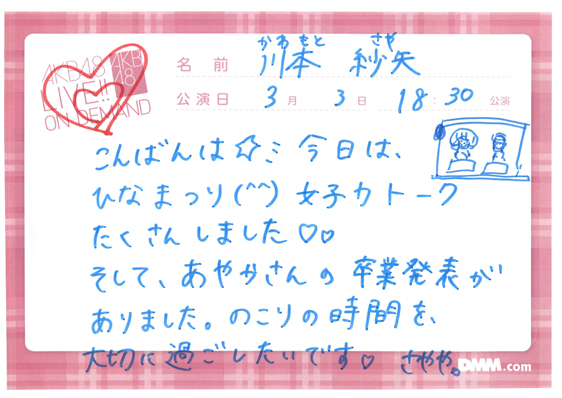 AKB48
LIVE!!
ON DEMAND
AKB
48
かわ もと さや
名前 川本 紗矢
公演日 3月 3日 18:30 公演
こんばんは☆ミ 今日は、
ひなまつり(^^) 女子力トーク
たくさんしました♡♡
そして、あやかさんの卒業発表が
ありました。のこりの時間を、
大切に過ごしたいです♡ さやや。
DMM.com